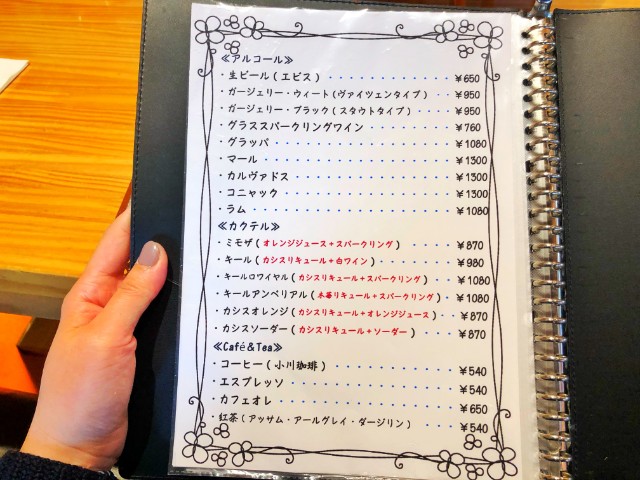 ≪アルコール≫
・生ビール(エビス)・・・・・・・・・・・・¥650
・ガージェリー・ウィート(ヴァイツェンタイプ)・・・¥950
・ガージェリー・ブラック(スタウトタイプ)・・・・¥950
・グラススパークリングワイン・・・・・・・・¥760
・グラッパ・・・・・・・・・・・・・・・・¥1080
・マール・・・・・・・・・・・・・・・・・¥1300
・カルヴァドス・・・・・・・・・・・・・・¥1300
・コニャック・・・・・・・・・・・・・・・¥1300
・ラム・・・・・・・・・・・・・・・・・・¥1080
≪カクテル≫
・ミモザ(オレンジジュース+スパークリング)・・・・¥870
・キール(カシスリキュール+白ワイン)・・・・・・¥980
・キールロワイヤル(カシスリキュール+スパークリング)・・・¥1080
・キールアンペリアル(木苺リキュール+スパークリング)・・¥1080
・カシスオレンジ(カシスリキュール+オレンジジュース)・・・¥870
・カシスソーダー(カシスリキュール+ソーダー)・・・・¥870
≪Café&Tea≫
・コーヒー(小川珈琲)・・・・・・・・・・・¥540
・エスプレッソ・・・・・・・・・・・・・・¥540
・カフェオレ・・・・・・・・・・・・・・・¥650
・紅茶(アッサム・アールグレイ・ダージリン)・・・・¥540